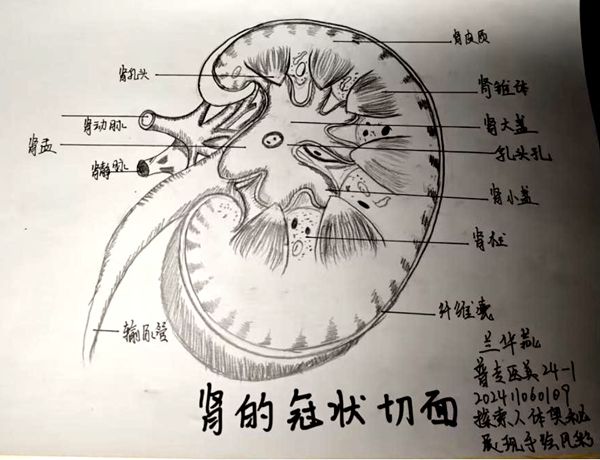 肾皮质
肾乳头
肾锥体
肾动脉
肾大盏
肾盂
乳头孔
肾静脉
肾小盏
肾柱
纤维囊
输尿管
兰华
普专医美24-1
20241060109
探索人体奥秘
展现手绘风彩
肾的冠状切面